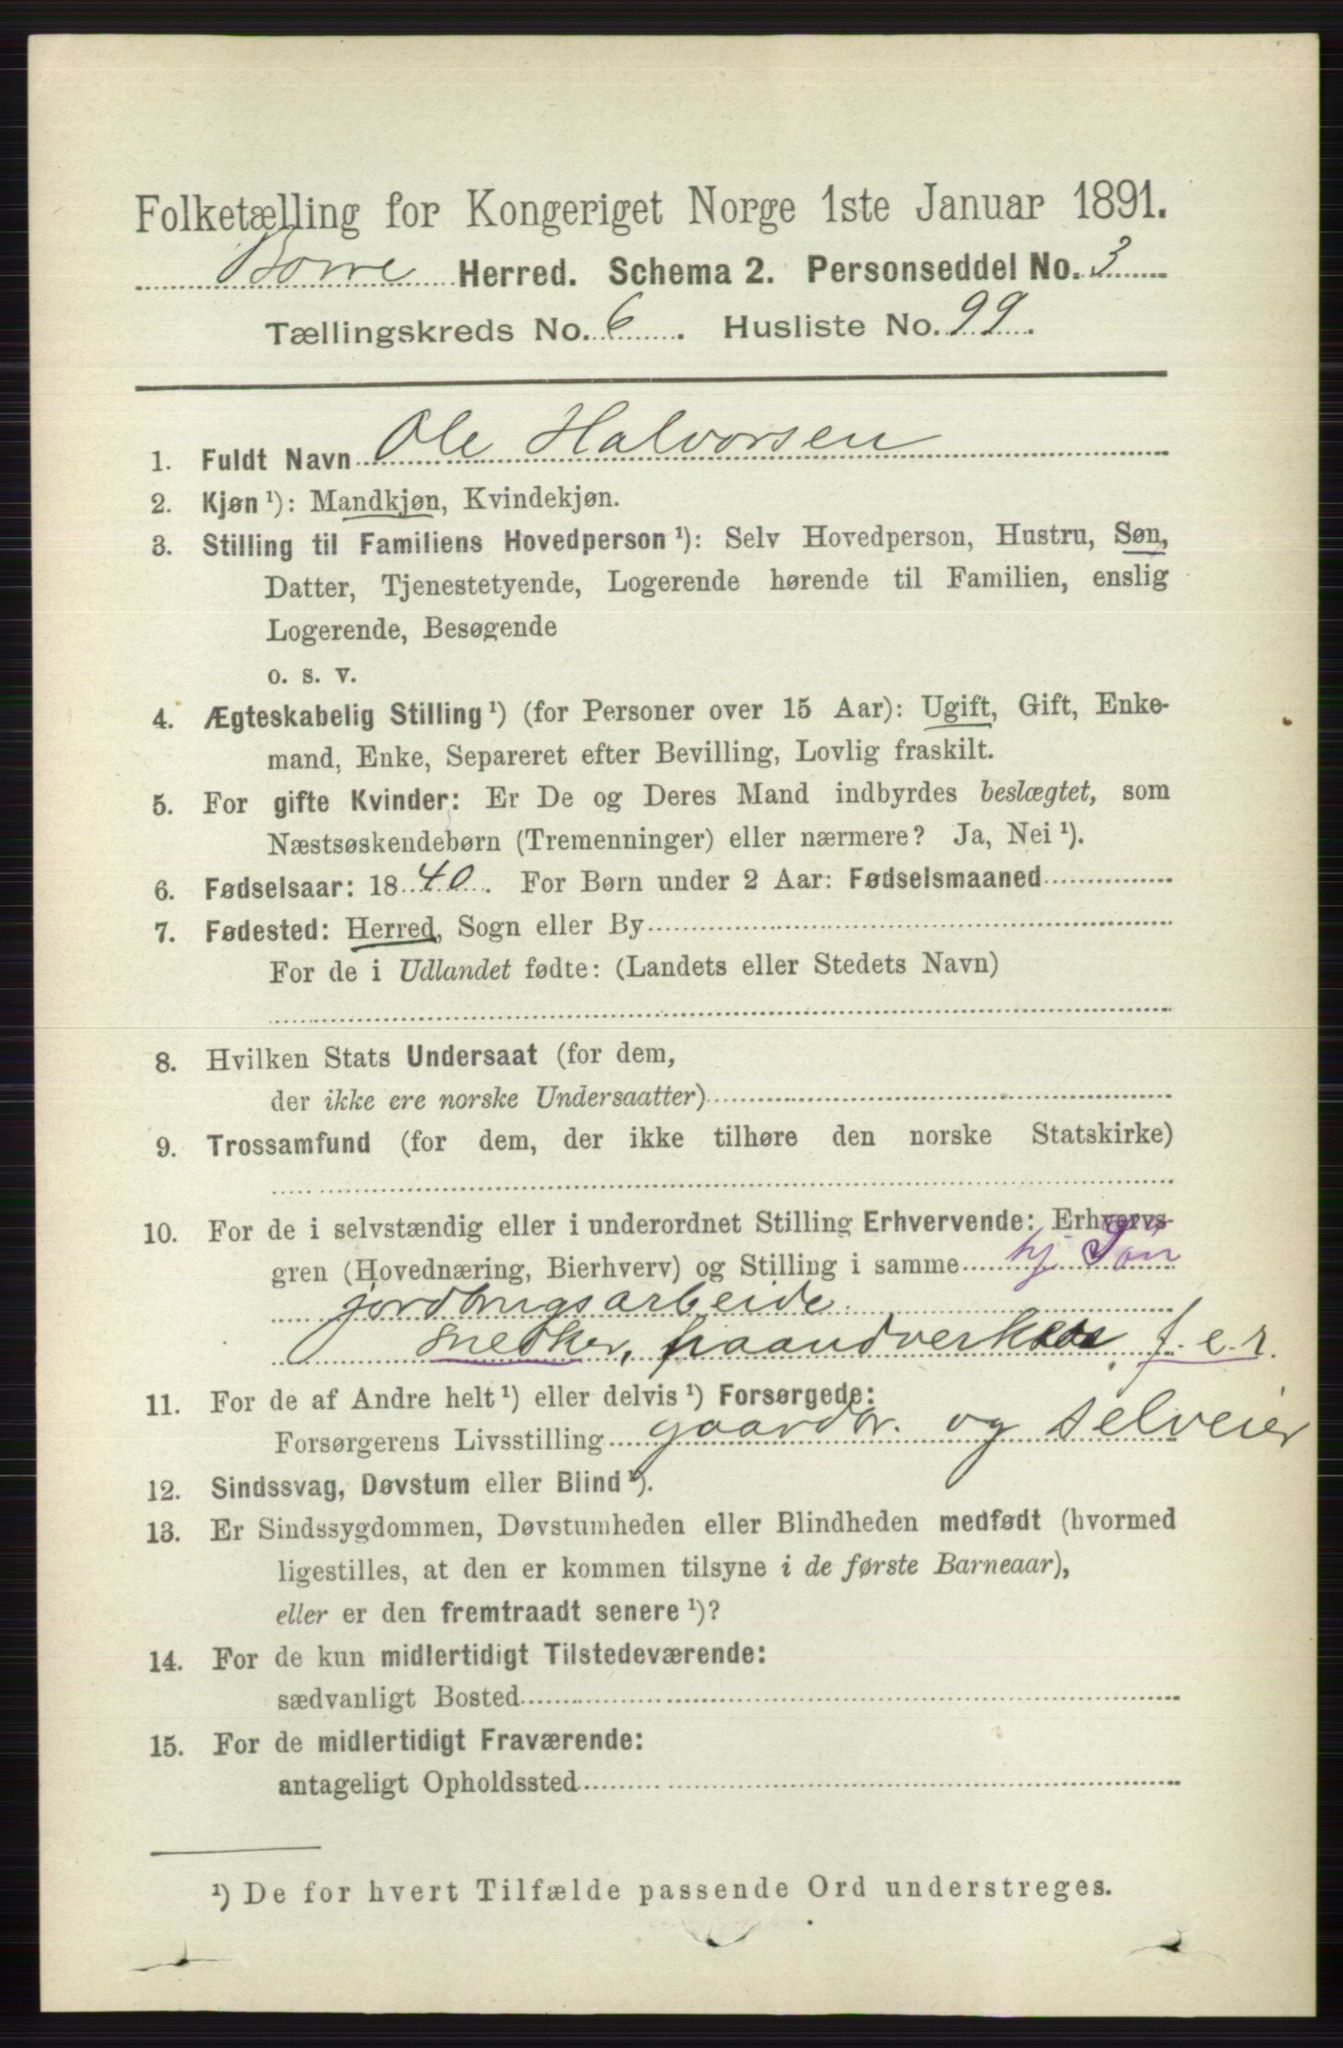 Folketælling for Kongeriget Norge 1ste Januar 1891.
Borre Herred. Schema 2. Personseddel No. 3
Tællingskreds No. 6. Husliste No. 99.
1. Fuldt Navn Ole Halvorsen
2. Kjøn ¹): Mandkjøn, Kvindekjøn.
3. Stilling til Familiens Hovedperson ¹): Selv Hovedperson, Hustru, Søn,
Datter, Tjenestetyende, Logerende hørende til Familien, enslig
Logerende, Besøgende
o. s. v.
4. Ægteskabelig Stilling ¹) (for Personer over 15 Aar): Ugift, Gift, Enke-
mand, Enke, Separeret efter Bevilling, Lovlig fraskilt.
5. For gifte Kvinder: Er De og Deres Mand indbyrdes beslægtet, som
Næstsøskendebørn (Tremenninger) eller nærmere? Ja, Nei ¹).
6. Fødselsaar: 1840. For Børn under 2 Aar: Fødselsmaaned
7. Fødested: Herred, Sogn eller By
For de i Udlandet fødte: (Landets eller Stedets Navn)
8. Hvilken Stats Undersaat (for dem,
der ikke ere norske Undersaatter)
9. Trossamfund (for dem, der ikke tilhøre den norske Statskirke)
10. For de i selvstændig eller i underordnet Stilling Erhvervende: Erhvervs-
gren (Hovednæring, Bierhverv) og Stilling i samme hj. Søn
jordbrugsarbeide.
snedker, haandverker f. e. r.
11. For de af Andre helt ¹) eller delvis ¹) Forsørgede:
Forsørgerens Livsstilling gaardbr. og selveier
12. Sindssvag, Døvstum eller Blind ¹).
13. Er Sindssygdommen, Døvstumheden eller Blindheden medfødt (hvormed
ligestilles, at den er kommen tilsyne i de første Barneaar),
eller er den fremtraadt senere ¹)?
14. For de kun midlertidigt Tilstedeværende:
sædvanligt Bosted
15. For de midlertidigt Fraværende:
antageligt Opholdssted
¹) De for hvert Tilfælde passende Ord understreges.